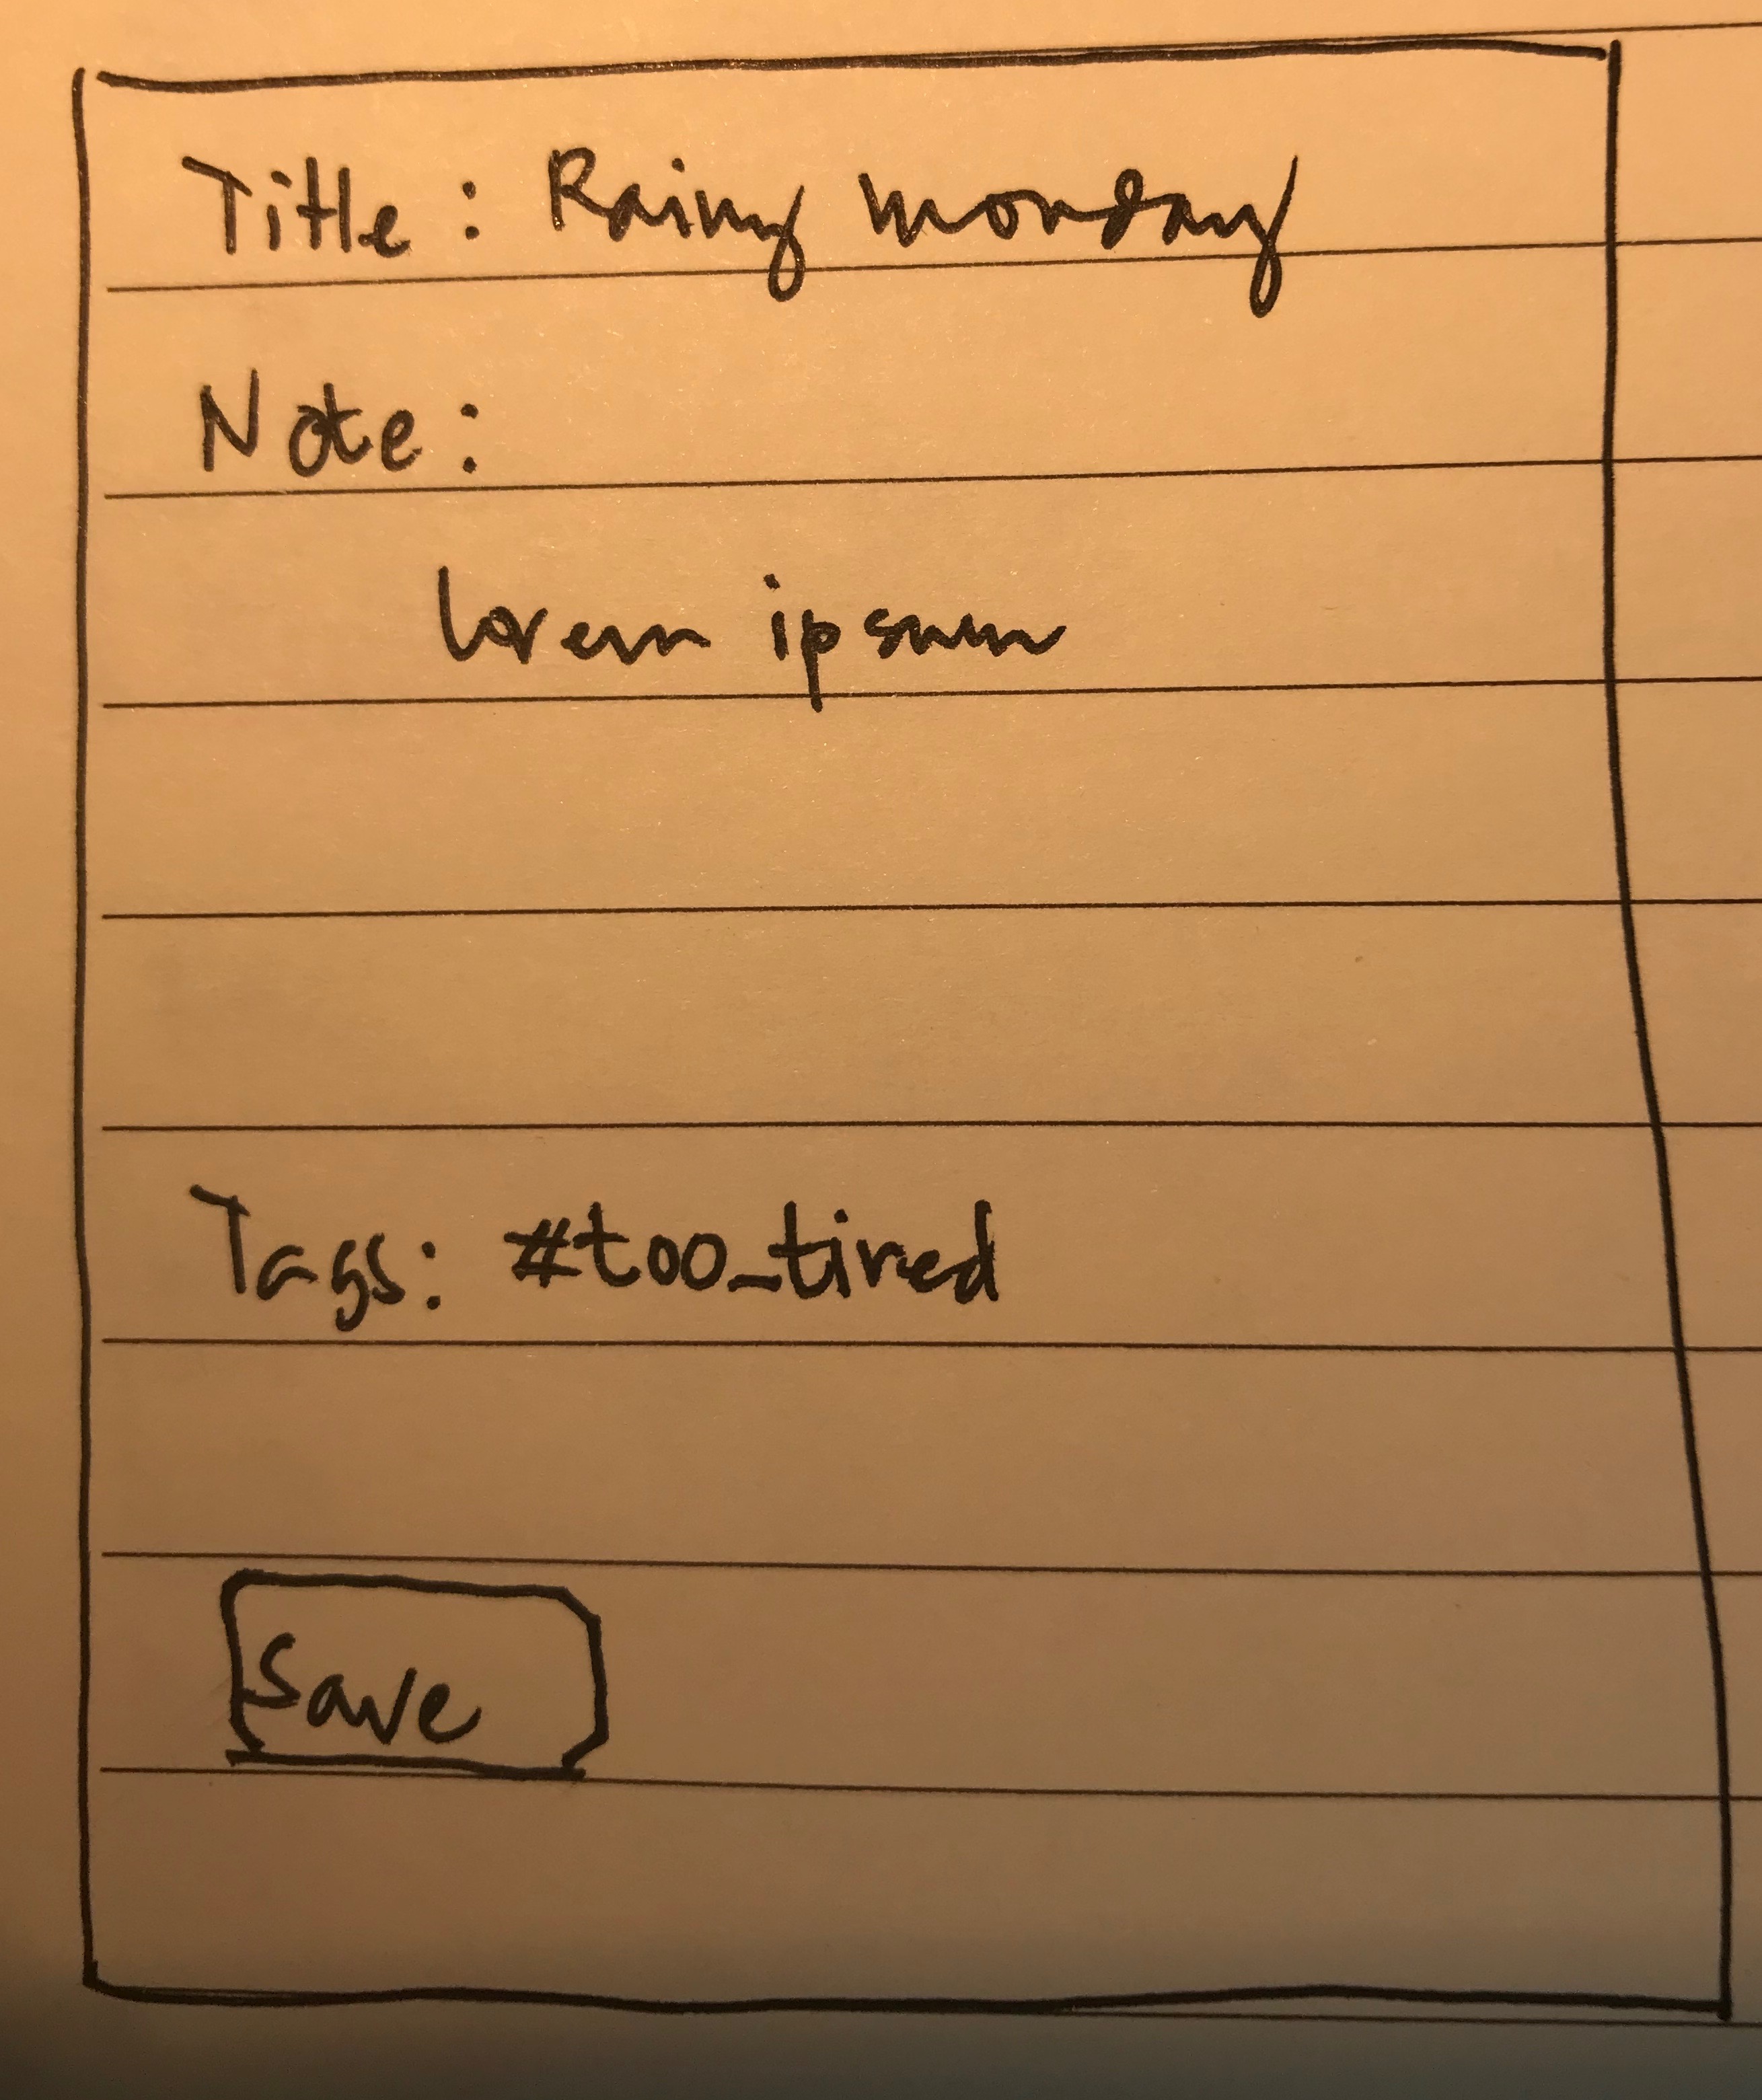 Title: Rainy monday
Note:
lorem ipsum
Tags: #too_tired
Save